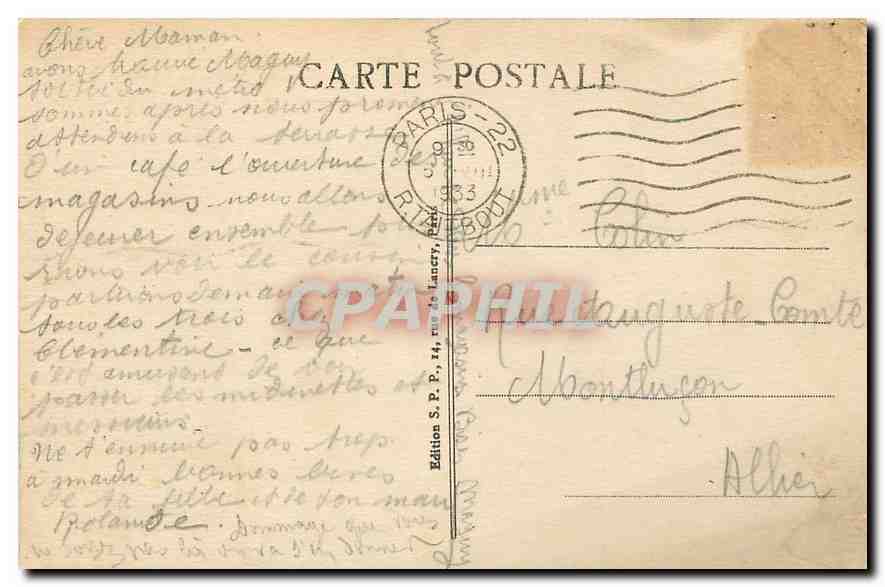 CARTE POSTALE
Chère Maman.
avons trouvé Maguy
sortie du métro
sommes après nous prome
attendons à la terrasse
d'un café l'ouverture des
magasins nous allons
dejeuner ensemble puis
irons voir le cousin
partirons demain mat
tous les trois chez
Clémentine - ce que
c'est amusant de voir
passer les midinettes et
messieurs.
Ne t'ennuie pas trop
a mardi bonnes bises
de ta fille et de ton mari
Rolande. Dommage que vous
ne soyez pas là on va s'en donner
PARIS - 22
1933
R. TAITBOUT
Edition S. P. P., 14, rue de Lancry, Paris
Mme Colin
Rue d'auguste Comte
Montluçon
Allier
CPAPHIL